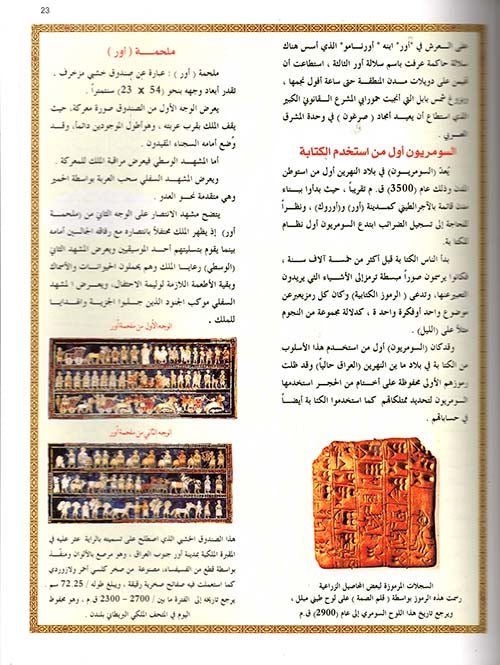 23
على العرش في "أور" ابنه " أورنامو" الذي أسس هناك
سلالة حاكمة عرفت باسم سلالة أور الثالثة ، استطاعت أن
تهيمن على دويلات مدن المنطقة حتى ساعة أفول نجمها ،
وبزوغ شمس بابل التي أنجبت حمورابي المشرع القانوني الكبير
الذي استطاع أن يعيد أمجاد ( صرغون ) في وحدة المشرق
العربي .
السومريون أول من استخدم الكتابة
يُعدّ (السومريــون) في بلاد النهرين أول من استوطن
المدن وذلك عام (3500) ق.م تقريباً ، حيث بدأوا ببـناء
مدن قائمة بالآجر الطيني كمدينة (أور) و(أوروك) ، ونظـراً
للحاجة إلى تسجيل الضرائب ابتدع السومريون أول نظام
للكتابة.
بدأ الناس الكتابة قبل أكثر من خمسـة آلاف سـنة ،
فكانوا يرسمون صوراً مبسطة ترمز إلى الأشياء التي يريدون
التعبير عنها، وتدعى ( الرموز الكتابية) وكان كل رمز يعبر عن
موضوع واحد أو فكرة واحدة ، كدلالة مجموعة من النجوم
مثلاً على (الليل) .
وقد كان (السومريون) أول من استخدم هذا الأسلوب
من الكتابة في بلاد ما بين النهرين (العراق حالياً) وقد ظلت
رموزهم الأولى محفوظة على أختام من الحجـر استخدمها
السومريون لتحديد ممتلكاتهم كما استخدموا الكتابة أيضـاً
في حساباتهم .
السجلات المرموزة لبعض المحاصيل الزراعية
رسمت هذه الرموز بواسطة ( قلم القصبة ) على لوح طيني مبلل ،
ويرجع تاريخ هذا اللوح السومري إلى عام (2900) ق.م
ملحمـــة ( أور )
ملحمة ( أور ) : عبارة عن صندوق خشبي مزخرف ،
تقدر أبعاد وجهه بنحو (54 x 23) سنتمتراً .
يعرض الوجه الأول من الصندوق صورة معركة، حيث
يقف الملك بقرب عربته ، وهو أطول الموجودين دائماً، وقــد
وُضع أمامه السجناء المقيدون .
أما المشهد الوسطي فيعرض مراقبة الملك للمعركة .
ويعرض المشهد السفلي سحب العربة بواسطة الحمير
وهي متقدمة نحـو العدو .
يتضح مشهد الانتصار على الوجه الثاني من (ملحمـة
أور) إذ يظهر الملك محتفلاً بانتصاره مع رفاقه الجالسين أمامه
بينما يقوم بتسليتهم أحـد الموسيقيين ويعرض المشهد الثاني
(الوسطي) رعايـا الملك وهم يحملون الحيوانـات والأسماك
وبقية الأطعمة اللازمة لوليمة الاحتفال، ويعـرض المشهد
السفلي موكب الجنود الذين جلبـوا الجزية والهـدايـا
للملك .
الوجه الأول من ملحمة أور
الوجه الثاني من ملحمة أور
هذا الصندوق الخشبي الذي اصطلح على تسميته بالراية عثر عليه في
المقبرة الملكية بمدينة أور جنوب العراق ، وهو مرصع بالألوان ومنفـذ
بواسطة قطع من الفسيفساء، مصنوعة من صخر كلسي أحمر ولازوردي
كما استعملت فيه صفائح صخرية رقيقة ، ويبلغ طوله / 72.25 سم .
يرجع تاريخه إلى الفترة ما بين / 2700 – 2300 ق.م ، وهو محفوظ
اليوم في المتحف الملكي البريطاني بلندن .